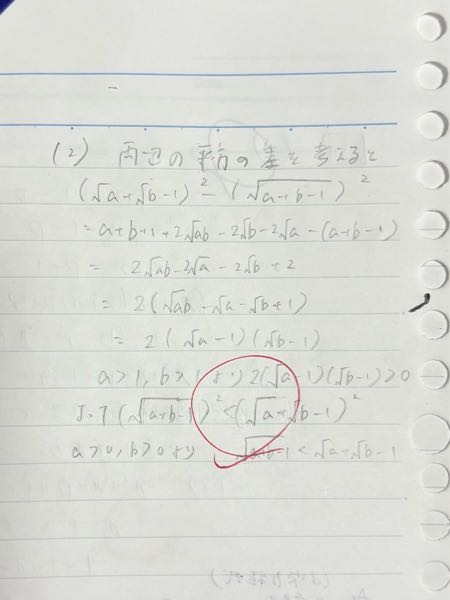 (2) 両辺の平方の差を考えると
(√a+√b-1)² - (√(a+b-1))²
=a+b+1+2√ab-2√b-2√a-(a+b-1)
= 2√ab-2√a-2√b+2
= 2(√ab-√a-√b+1)
= 2(√a-1)(√b-1)
a>1, b>1より2(√a-1)(√b-1)>0
よって(√(a+b-1))²<(√a+√b-1)²
a>0, b>0より √(a+b-1)<√a+√b-1